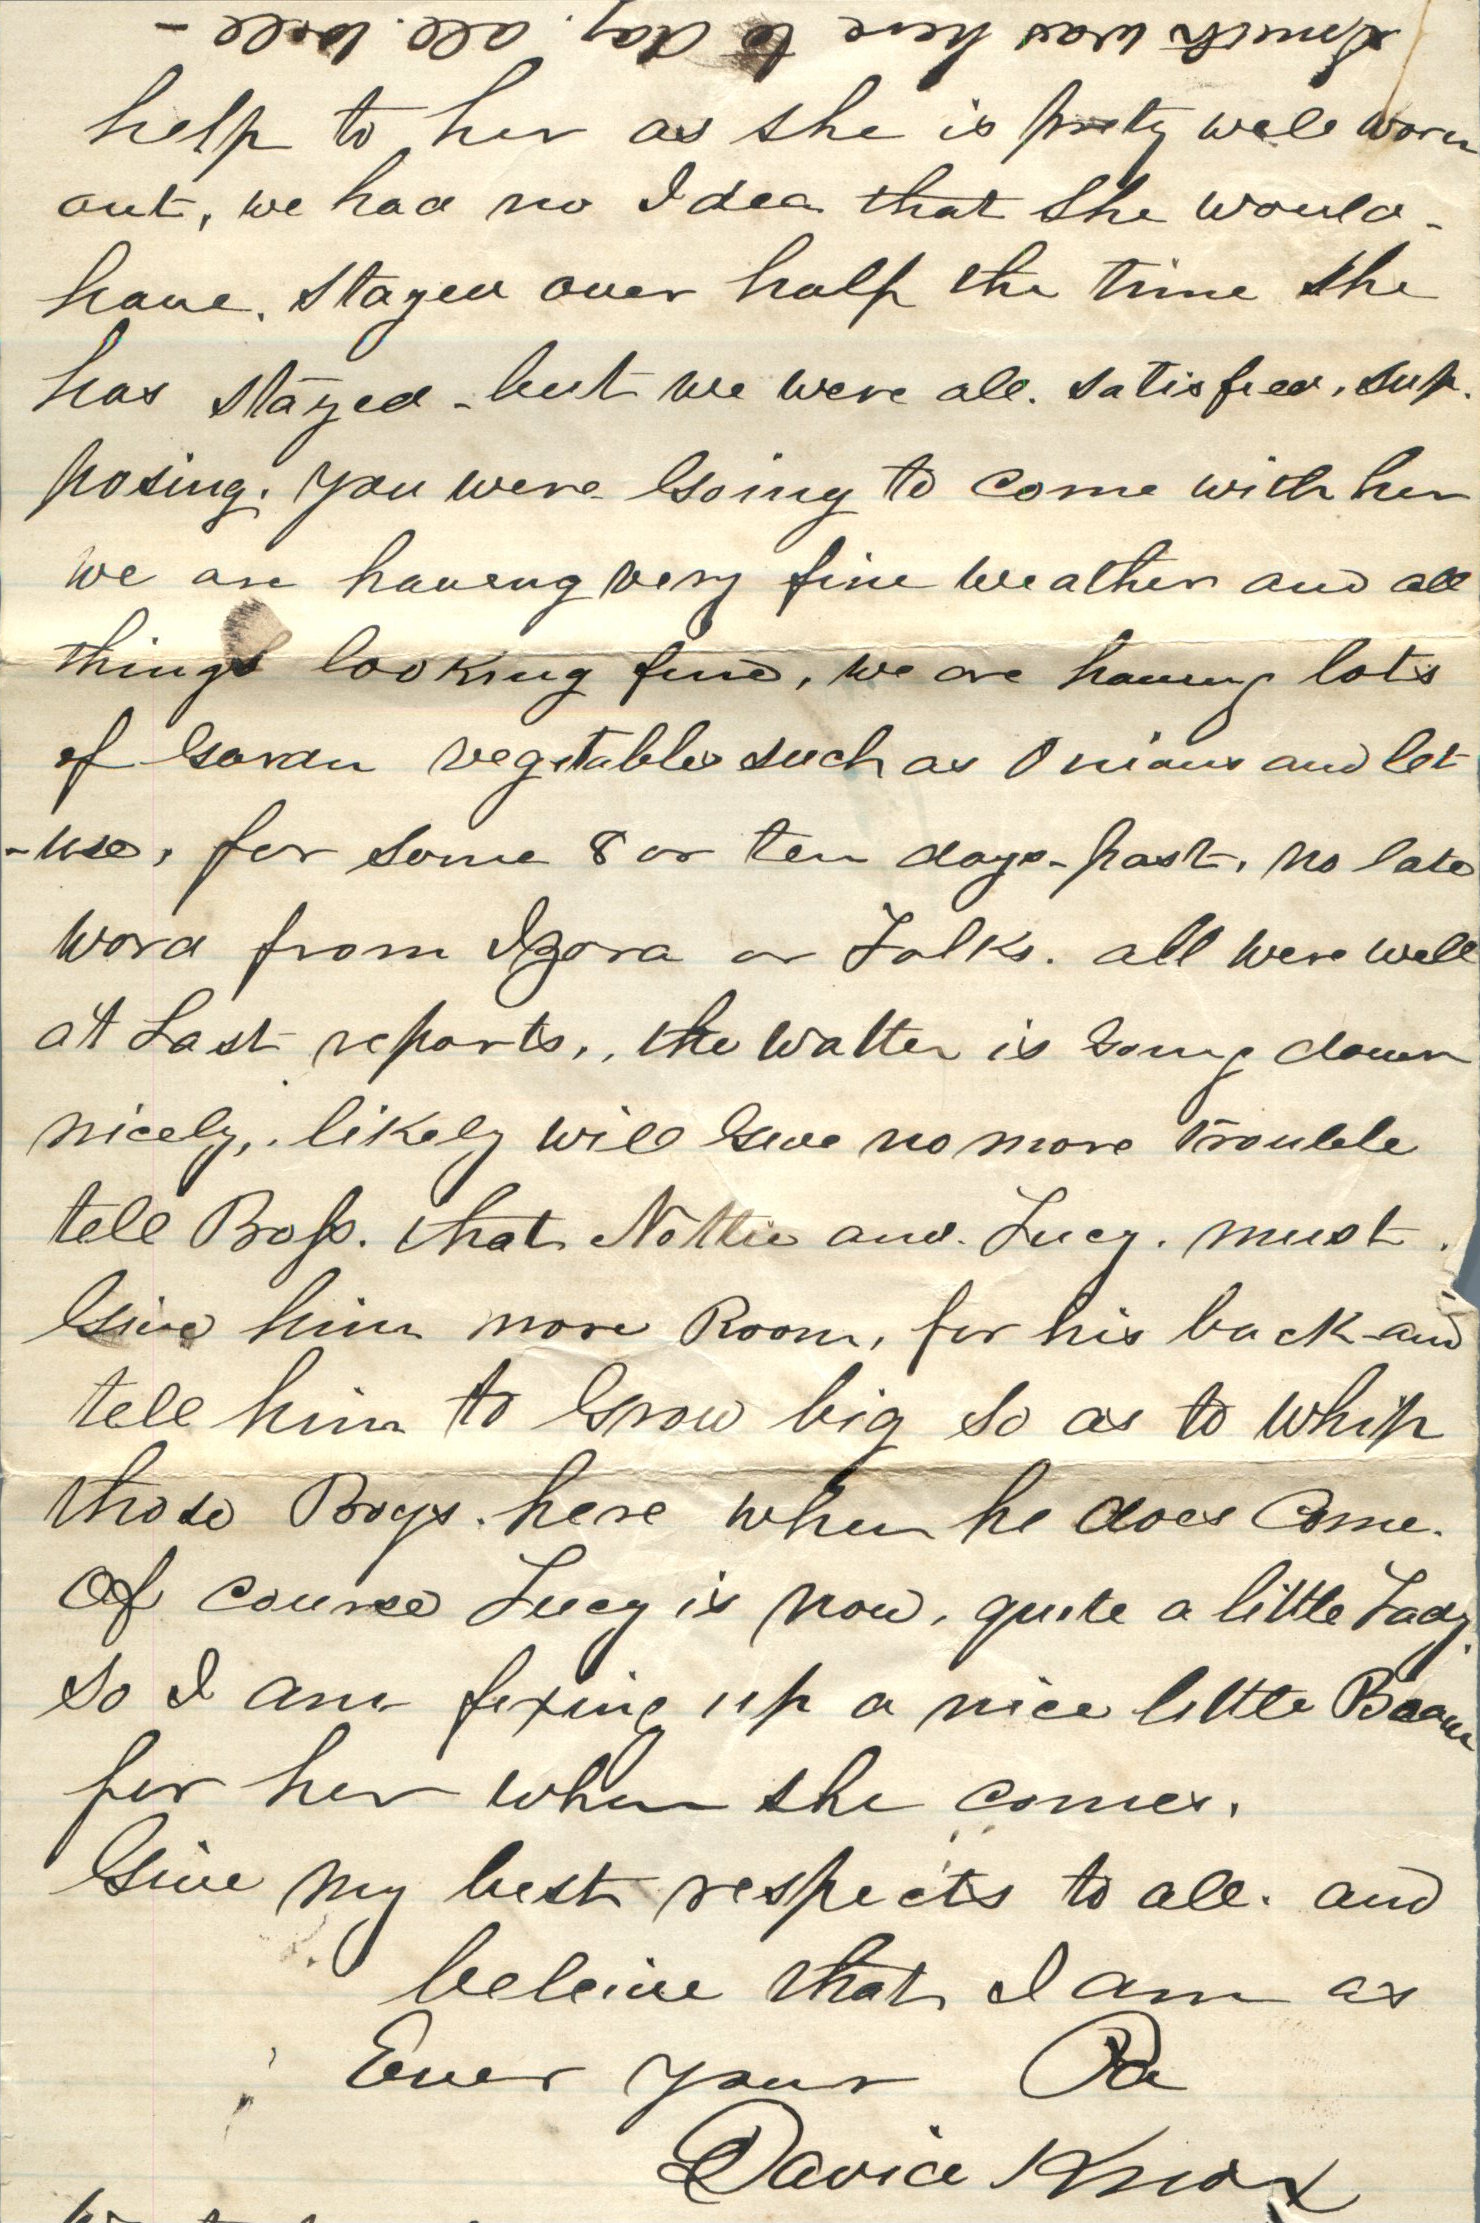 Smith was here to day. all. well -
help to her as she is prety well worn
out, we had no Idea that She would -
have. stayed over half the time she
has stayed - but we were all. satisfied, sup.
posing. you were Going to come with her
we are haveng very fine weather and all
things looking fine, we are having lots
of Garden vegetables such as Onions and let
-use, for some 8 or ten days - past. no late
word from Izora or Folks. all were well
at Last reports,. the Watter is Going down
nicely,. likely will Give no more trouble
tell Boss. that Nottie and. Lucy. must.
Give him more Room, for his back and
tell him to Grow big so as to whip
those Boys. here when he does Come.
Of course Lucy is now, quite a little Lady.
so I am fixing up a nice little Beau
for her when she comes.
Give my best respects to all. and
beleive that I am as
Ever your Pa
David Knox